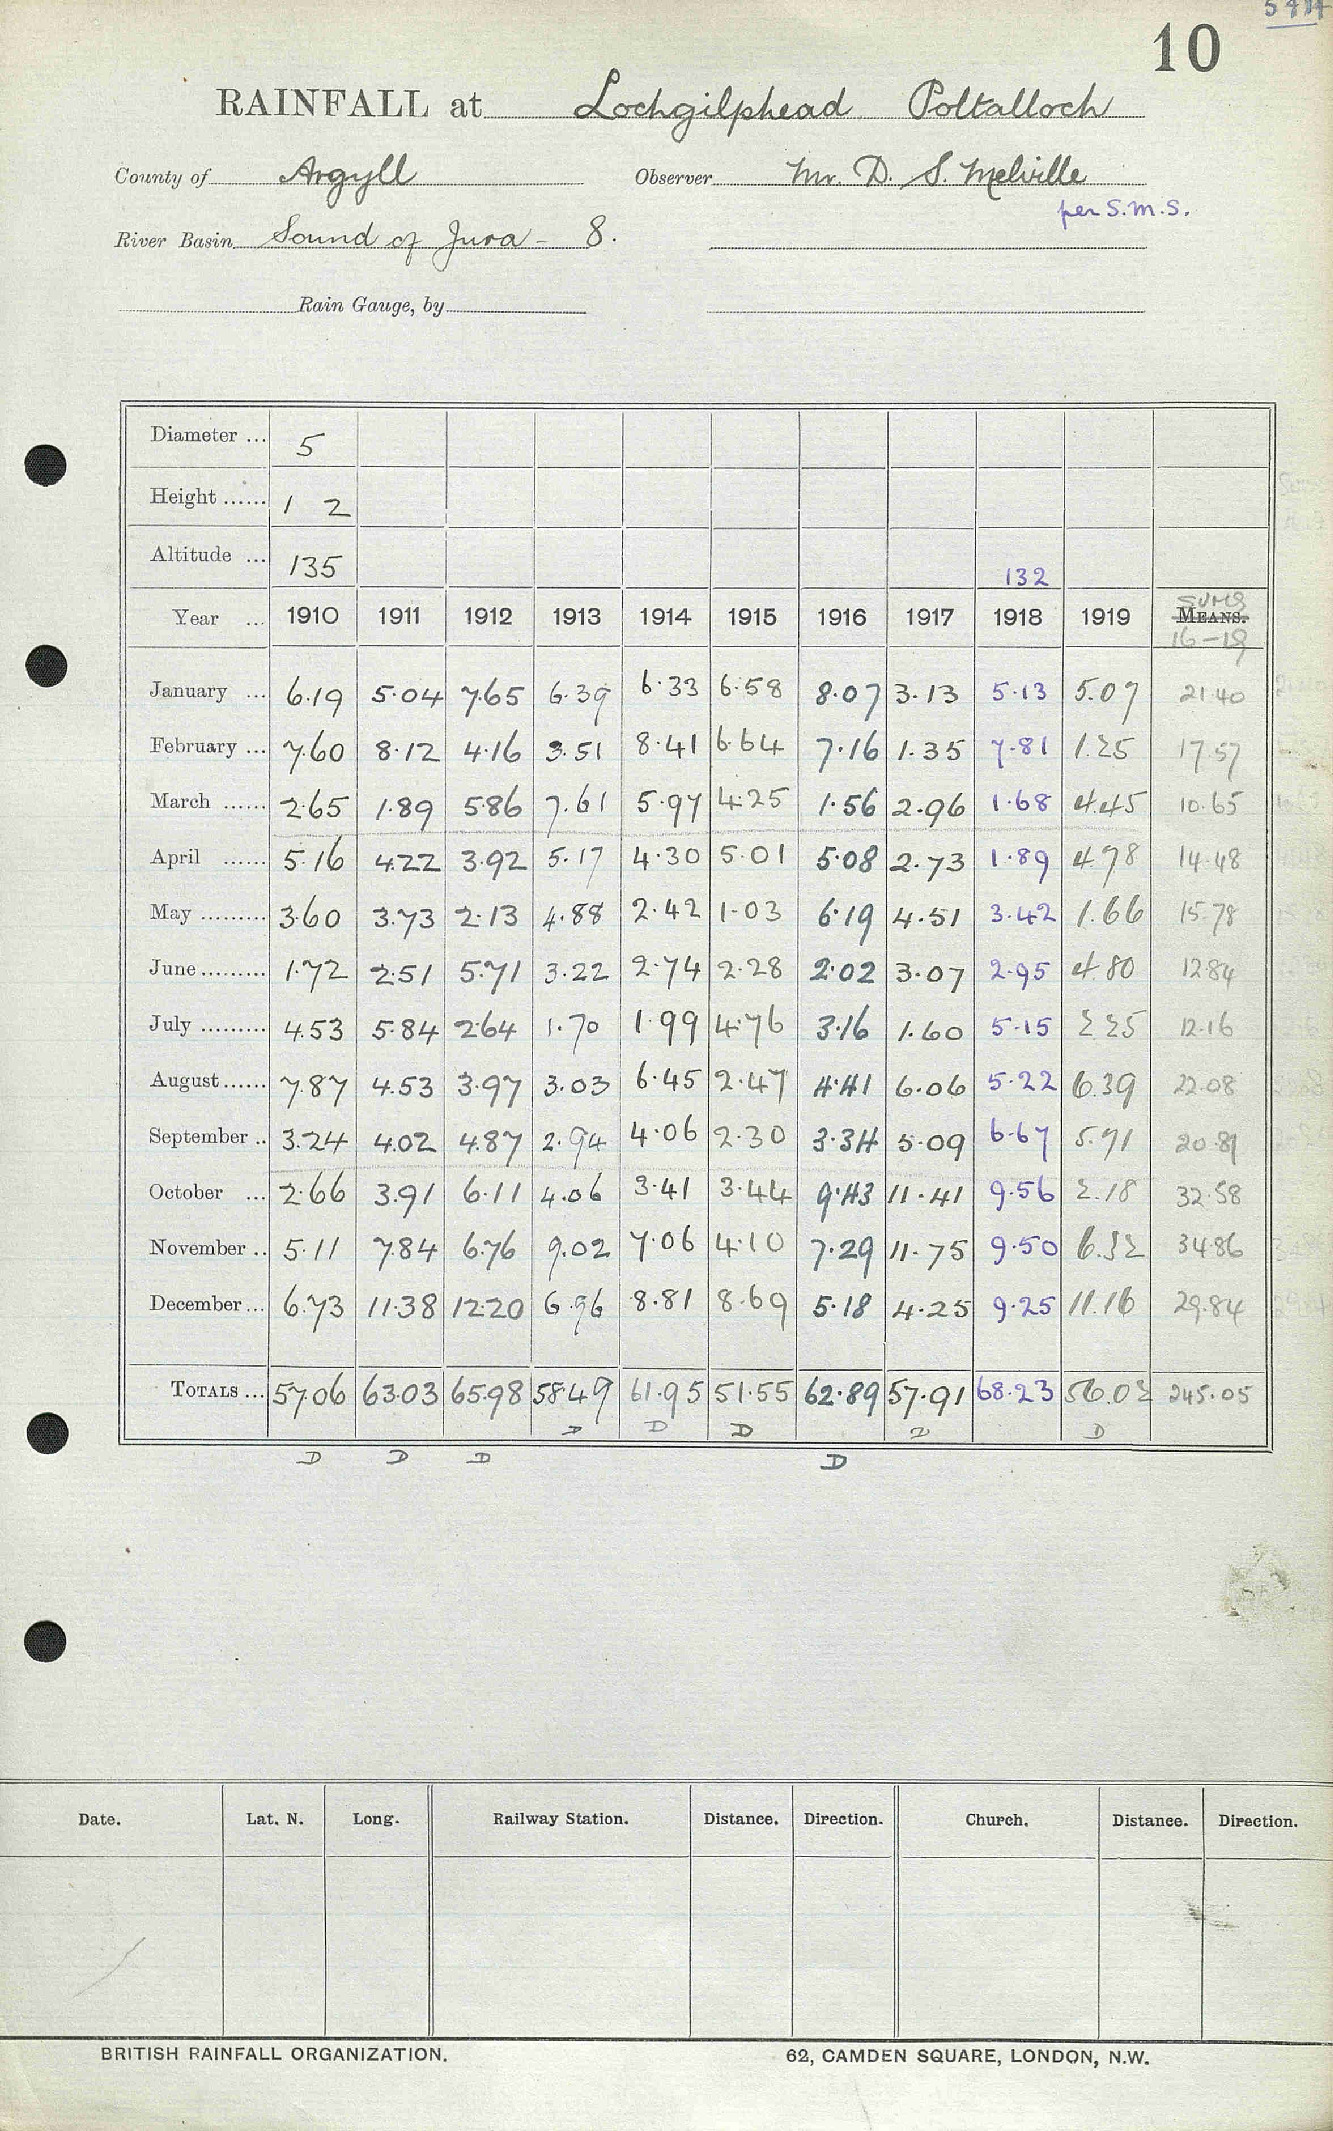 10
RAINFALL at Lochgilphead Poltalloch
County of Argyll Observer Mr. D. S. Melville
per S.M.S.
River Basin Sound of Jura - 8.
Rain Gauge, by
Diameter ... 5
Height ...... 1 2
Altitude ... 135 132
Year ... 1910 1911 1912 1913 1914 1915 1916 1917 1918 1919 SUMS MEANS. 16-19
January ... 6.19 5.04 7.65 6.39 6.33 6.58 8.07 3.13 5.13 5.07 21.40
February ... 7.60 8.12 4.16 3.51 8.41 6.64 7.16 1.35 7.81 1.25 17.57
March ...... 2.65 1.89 5.86 7.61 5.97 4.25 1.56 2.96 1.68 4.45 10.65
April ...... 5.16 4.22 3.92 5.17 4.30 5.01 5.08 2.73 1.89 4.78 14.48
May ......... 3.60 3.73 2.13 4.88 2.42 1.03 6.19 4.51 3.42 1.66 15.78
June ......... 1.72 2.51 5.71 3.22 2.74 2.28 2.02 3.07 2.95 4.80 12.84
July ......... 4.53 5.84 2.64 1.70 1.99 4.76 3.16 1.60 5.15 2.25 12.16
August ...... 7.87 4.53 3.97 3.03 6.45 2.47 4.41 6.06 5.22 6.39 22.08
September .. 3.24 4.02 4.87 2.94 4.06 2.30 3.34 5.09 6.67 5.71 20.81
October ... 2.66 3.91 6.11 4.06 3.41 3.44 9.43 11.41 9.56 2.18 32.58
November .. 5.11 7.84 6.76 9.02 7.06 4.10 7.29 11.75 9.50 6.32 34.86
December ... 6.73 11.38 12.20 6.96 8.81 8.69 5.18 4.25 9.25 11.16 29.84
TOTALS ... 57.06 63.03 65.98 58.49 61.95 51.55 62.89 57.91 68.23 56.02 245.05
D D D D D
D D D D
Date. Lat. N. Long. Railway Station. Distance. Direction. Church. Distance. Direction.
BRITISH RAINFALL ORGANIZATION. 62, CAMDEN SQUARE, LONDON, N.W.